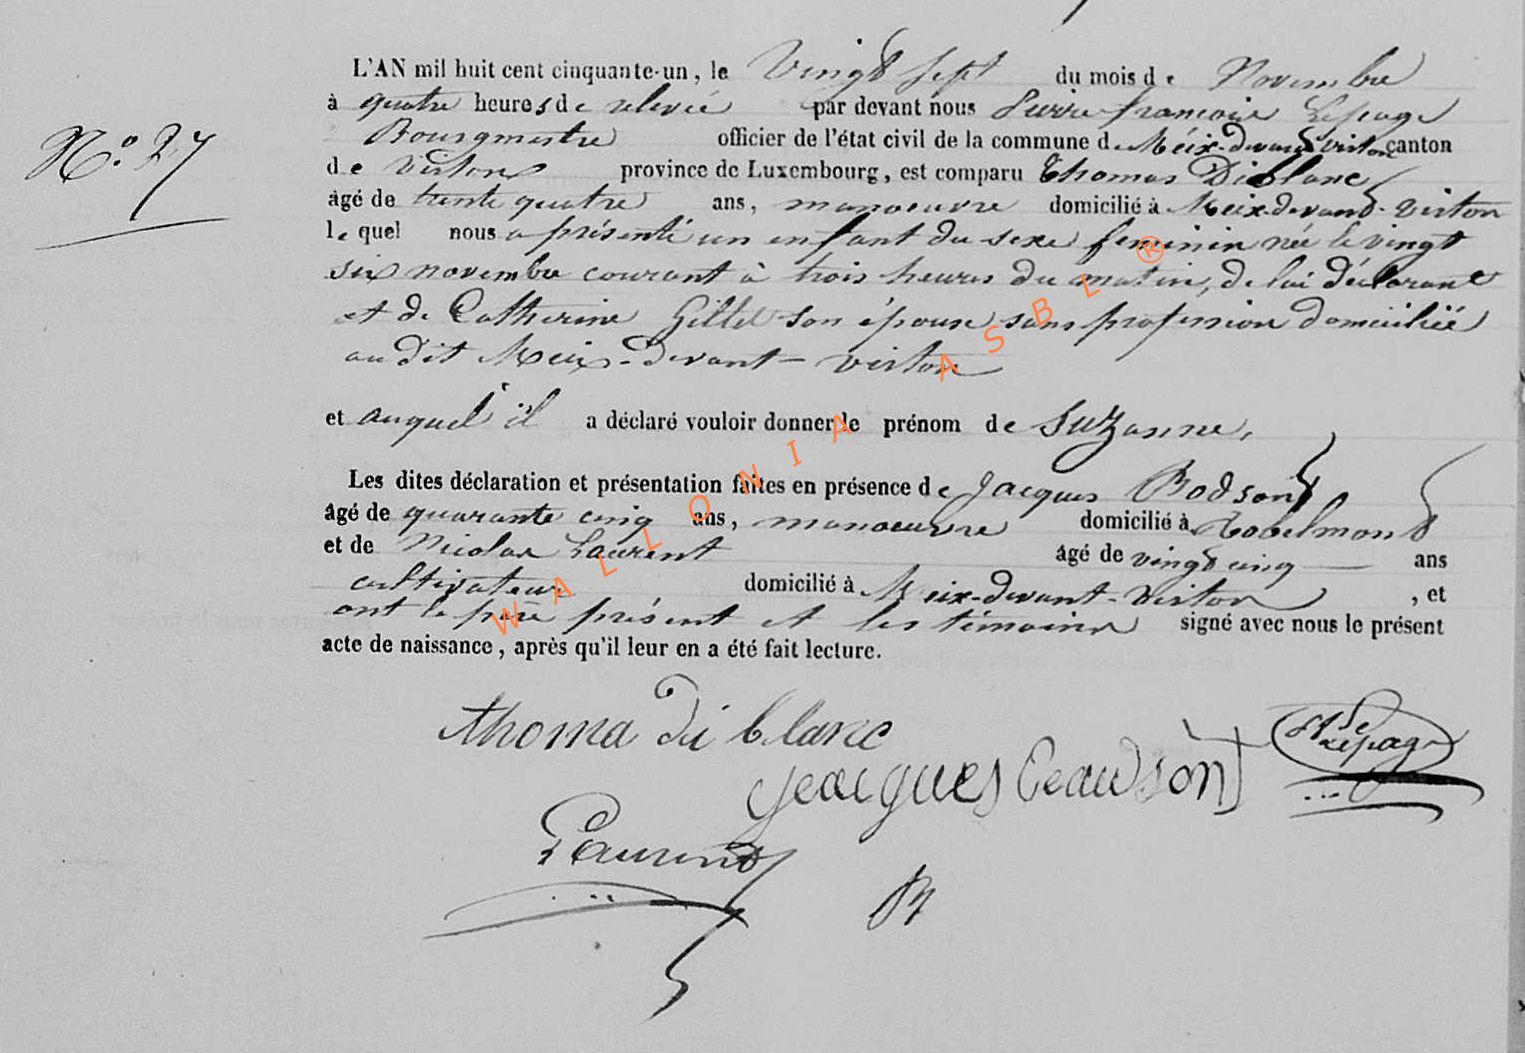 L'AN mil huit cent cinquante-un, le Vingt sept du mois de Novembre
à quatre heures de relevée par devant nous Pierre françois Lepage
N.° 27
Bourgmestre officier de l'état civil de la commune de Méix-devant virton canton
de Virton province de Luxembourg, est comparu Thomas Diblanc
âgé de trente quatre ans, manoeuvre domicilié à Meix-devant-virton
le quel nous a présenté un enfant du sexe feminin née le vingt
six novembre courant à trois heures du matin, de lui déclarant
et de Catherine Gillet son épouse sans profession domiciliée
au dit Meix-devant-virton
et auquel il a déclaré vouloir donner le prénom de Suzanne,
Les dites déclaration et présentation faites en présence de Jacques Bodson
âgé de quarante cinq ans, manoeuvre domicilié à Robelmont
et de Nicolas Laurent âgé de vingt cinq ans
cultivateur domicilié à Meix-devant-Virton, et
ont le père présent et les témoins signé avec nous le présent
acte de naissance, après qu'il leur en a été fait lecture.
thoma di blanc
Lepage
Jeacques Beaudson
Laurent
WALLONIA ASBL ®